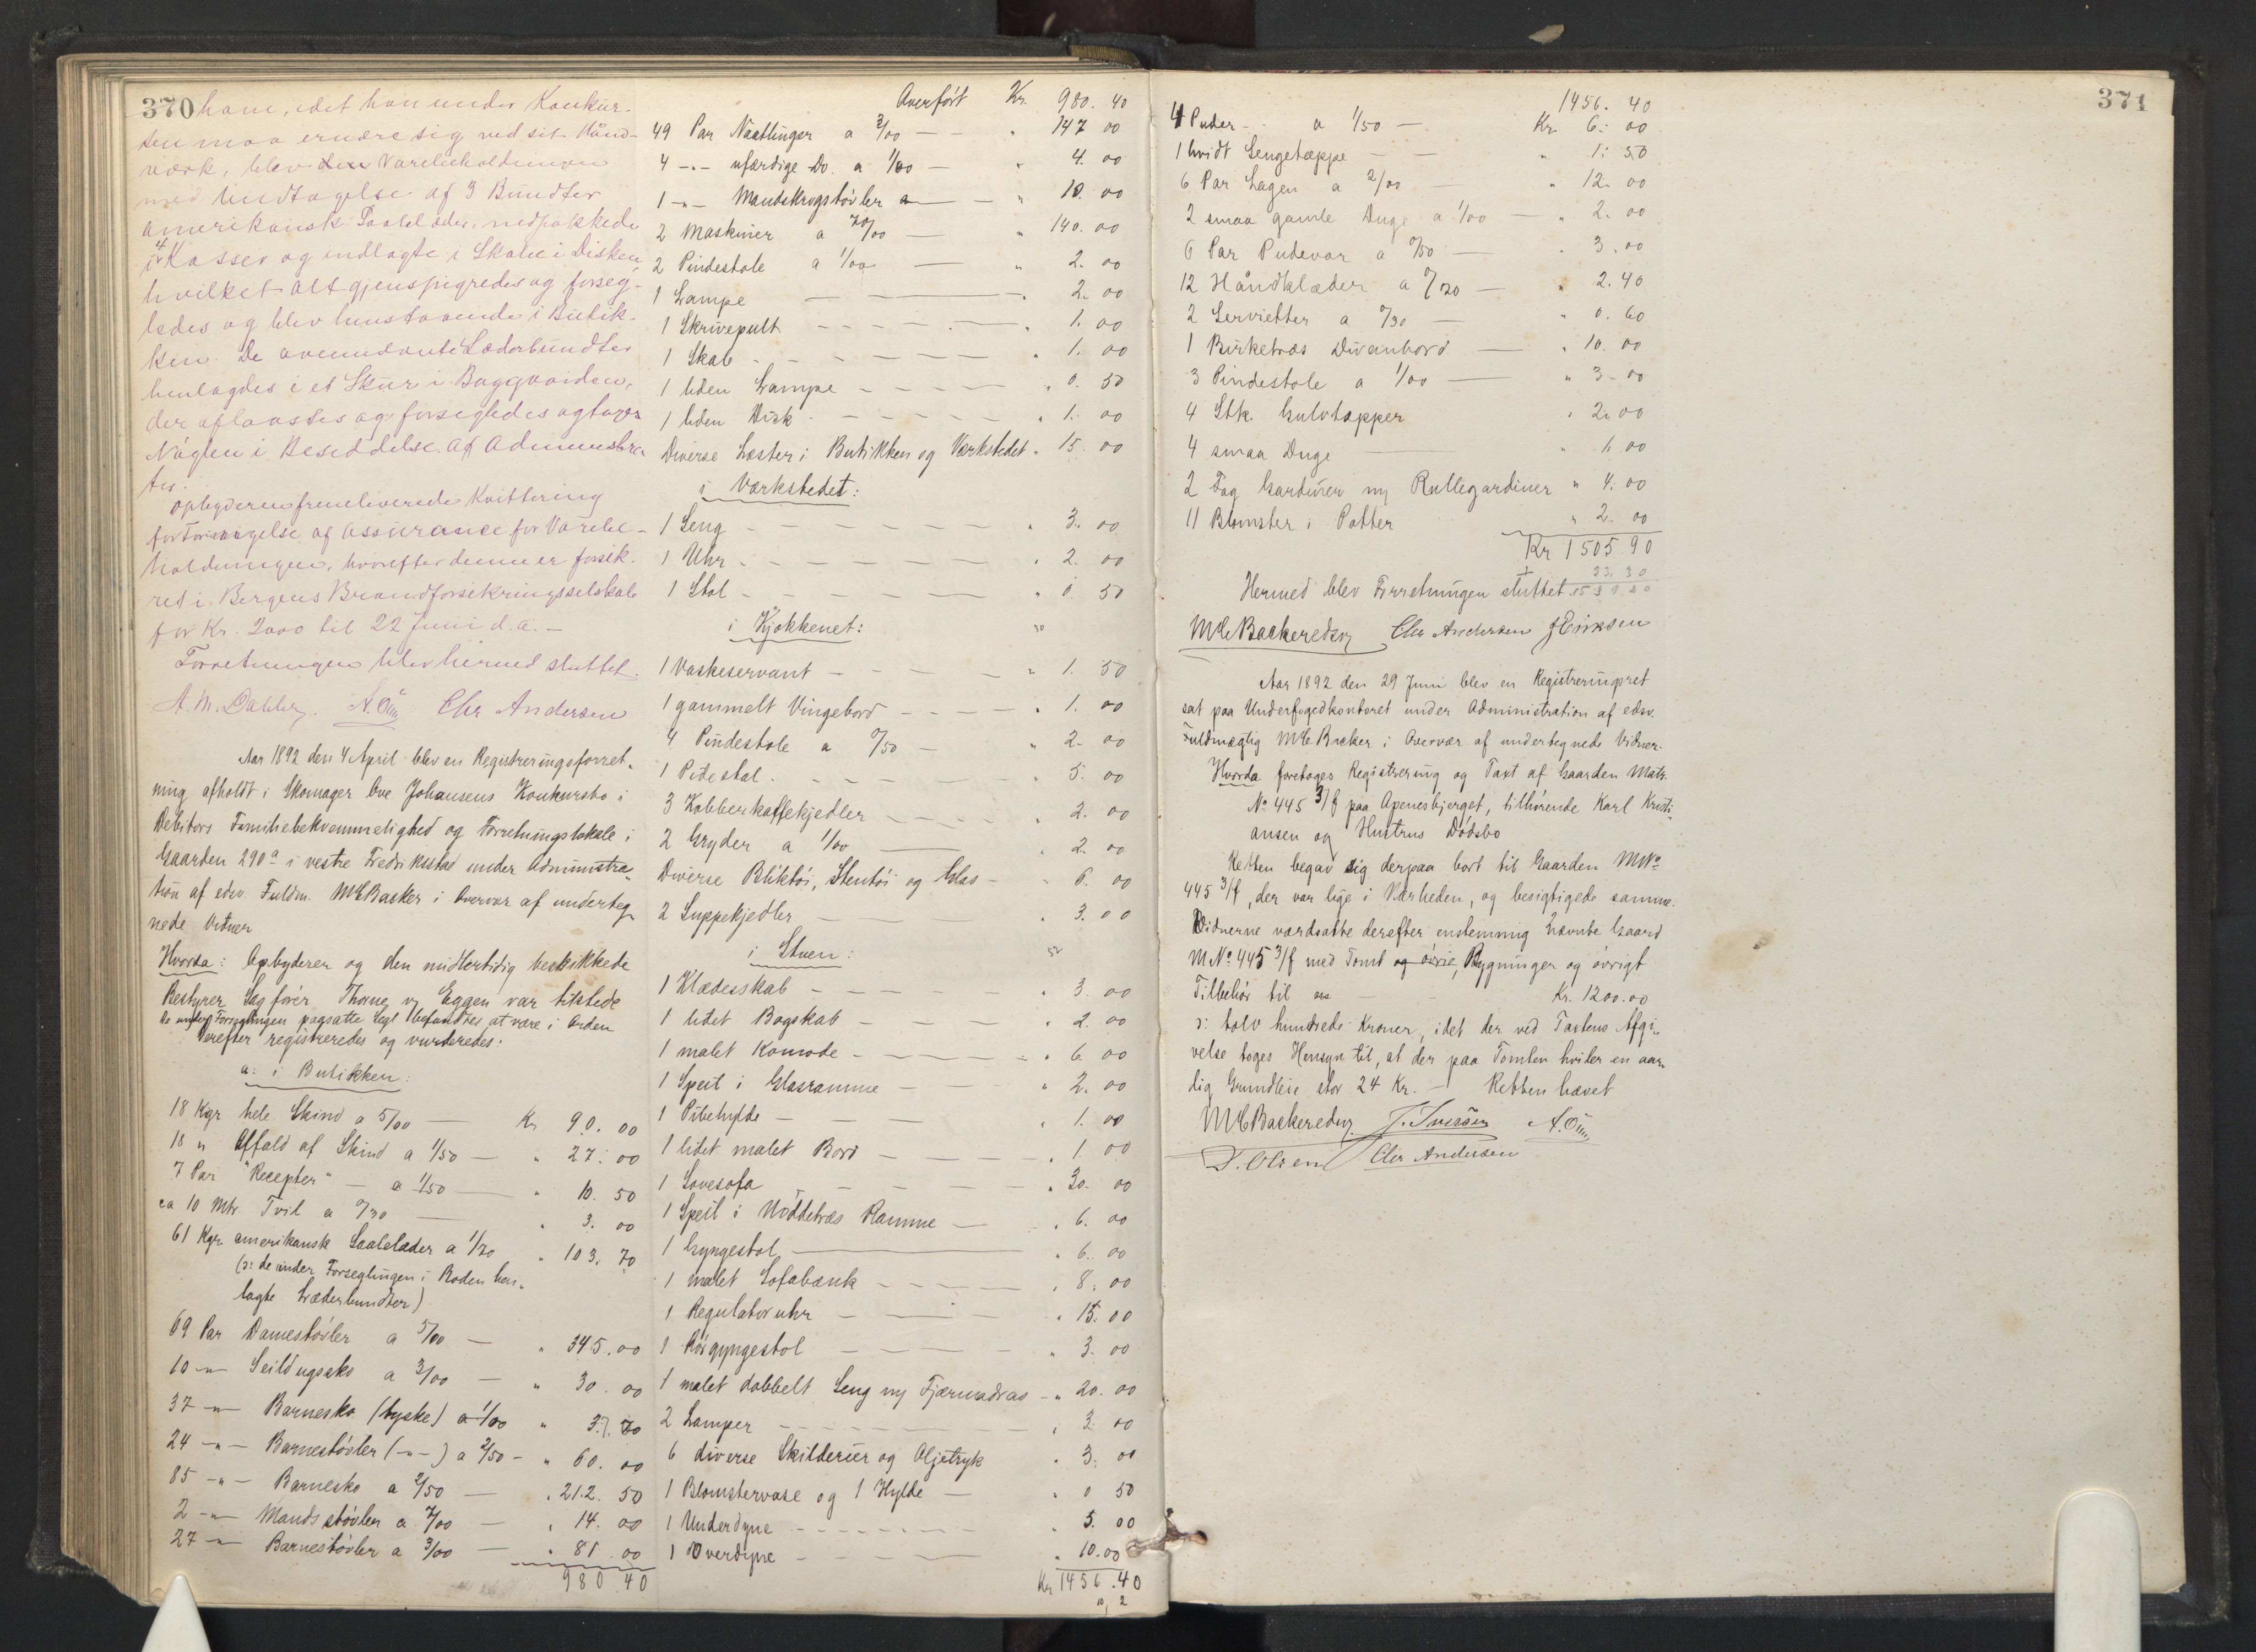 370 ham, idet han under Konkur-
sen maa ernære sig ved sit Hånd-
værk, blev den Varebeholdningen
med Undtagelse af 3 Bundter
amerikansk Saalelæder, nedpakkede
i 4 Kasser og indlagte i Skabe i Disken,
hvilket alt gjenspigredes og forseg-
ledes og blev henstaaende i Butik-
ken. De ovennævnte Læderbundter
henlagdes i et Skur i Baggaarden,
der aflaastes og forsegledes og toges
Nøglen i Besiddelse af Administra-
tor.
Opbyderen fremleverede Kvittering
for Forøigelse af Assurance for Varebe-
holdningen, hvorefter denne er forsik-
red i Bergens Brandforsikringsselskab
for Kr. 2000 til 22 Juni d.a. —
Forretningen blev hermed sluttet.
A. M. Dahler. Chr Andersen
Aar 1892 den 4 April blev en Registreringsforret-
ning afholdt i Skomager Ove Johansens Konkursbo i
Debitors Familiebekvemmelighed og Forretningslokale i
Gaarden 290a i vestre Fredriksstad under Administra-
tion af edsv. Fuldm. M C Backer i Overvær af underteg-
nede Vidner
Hvorda: Opbyderen og den midlertidig beskikkede
Bestyrer Sagfører Thorne v. Eggen var tilstede
De under Forseglingen paasatte Segl befandtes at være i Orden
Derefter registreredes og vurderedes:
a: i Butikken:
18 Kgr hele Skind a 5/00 — Kr 90. 00
18 " Affald af Skind a 1/50 — " 27. 00
7 Par "Recepter" — a 1/50 — " 10. 50
ca 10 Mtr. Tvil a 0/30 — " 3. 00
61 Kgr amerikansk Saalelæder a 1/70 " 103. 70
(ɔ: de under Forseglingen i Boden hen-
lagte Læderbundter)
69 Par Damestøvler a 5/00 — " 345. 00
10 -"- Seildugssko a 3/00 — " 30. 00
37 -"- Barnesko (tyske) a 1/00 " 37. 00
24 -"- Barnestøvler (-"-) a 2/50 - " 60. 00
85 -"- Barnesko a 2/50 — " 212. 50
2 -"- Mandsstøvler a 7/00 — " 14. 00
27 -"- Barnestøvler a 3/00 — " 81. 00
980. 40
Overført Kr. 980. 40
49 Par Naatlinger a 3/00 — " 147 00
4 -"- ufærdige Do. a 1/00 — " 4. 00
1 -"- Mandskragstøvler a — " 10. 00
2 Maskiner a 70/00 — " 140. 00
2 Pindestole a 1/00 — " 2. 00
1 Lampe — " 2. 00
1 Skrivepult — " 1. 00
1 Skab — " 1. 00
1 liden Lampe — " 0. 50
1 liden Disk — " 1. 00
Diverse Læster i Butikken og Værkstedet " 15 00
i Værkstedet:
1 Seng — " 3. 00
1 Uhr — " 2. 00
1 Stol — " 0. 50
i Kjøkkenet:
1 Vaskeservant — " 1. 50
1 gammelt Vingebord — " 1. 00
4 Pindestole a 0/50 — " 2. 00
1 Pidestal — " 5. 00
3 Kobberkaffekjedler — " 2. 00
2 Gryder a 1/00 — " 2. 00
Diverse Bliktøi, Stentøi og Glas — " 6. 00
2 Suppekjedler — " 3. 00
i Stuen:
1 Klædesskab — " 3. 00
1 lidet Bogskab — " 2. 00
1 malet Komode — " 6. 00
1 Speil i Glasramme — " 2. 00
1 Pibehylde — " 1. 00
1 lidet malet Bord — " 1. 00
1 Sovesofa — " 30. 00
1 Speil i Nøddetræs Ramme — " 6. 00
1 Gyngestol — " 6. 00
1 malet Sofabænk — " 8. 00
1 Regulatoruhr — " 15. 00
1 Rørgyngestol — " 3. 00
1 malet dobbelt Seng m/ Fjærmadras — " 20. 00
2 Lamper — " 3. 00
6 diverse Skilderier og Oljetryk " 3. 00
1 Blomstervase og 1 Hylde — " 0 50
1 Underdyne — " 5. 00
1 Overdyne — " 10. 00
Kr 1456. 40
371
1456. 40
4 Puder — a 1/50 — Kr 6. 00
1 hvidt Sengetæppe — " 1. 50
6 Par Lagen a 2/00 — " 12. 00
2 smaa gamle Duge a 1/00 — " 2. 00
6 Par Pudevar a 0/50 — " 3. 00
12 Håndklæder a 0/20 — " 2. 40
2 Servietter a 0/30 — " 0. 60
1 Birketræs Divanbord — " 10. 00
3 Pindestole a 1/00 — " 3. 00
4 Stk. Gulvtæpper " 2. 00
4 smaa Duge " 1. 00
2 Fag Gardiner m/ Rullegardiner " 4. 00
11 Blomster i Potter " 2. 00
Kr 1505 90
+ 23. 30
Hermed blev Forretningen sluttet
M C Backer edsv Chr Andersen J Eriksen
Aar 1892 den 29 Juni blev en Registreringsret
sat paa Underfogedkontoret under Administration af edsv.
Fuldmægtig M C Backer i Overvær af undertegnede Vidner.
Hvorda foretoges Registrering og Taxt af Gaarden Matr.
No 445 3/f paa Apenesbjerget, tilhørende Karl Kristi-
ansen og Hustrus Dødsbo
Retten begav sig derpaa bort til Gaarden MNo
445 3/f, der var lige i Nærheden, og besigtigede samme.
Vidnerne værdsatte derefter enstemmig nævnte Gaard
MNo 445 3/f med Tomt og øvrie, Bygninger og øvrigt
Tilbehør til — Kr. 1200.00
ɔ: tolv hundrede Kroner, idet der ved Taxtens Afgi-
velse toges Hensyn til, at der paa Tomten hviler en aar-
lig Grundleie stor 24 Kr. — Retten hævet
M C Backer edsv. J. Iversen
T. Olsen Chr Andersen